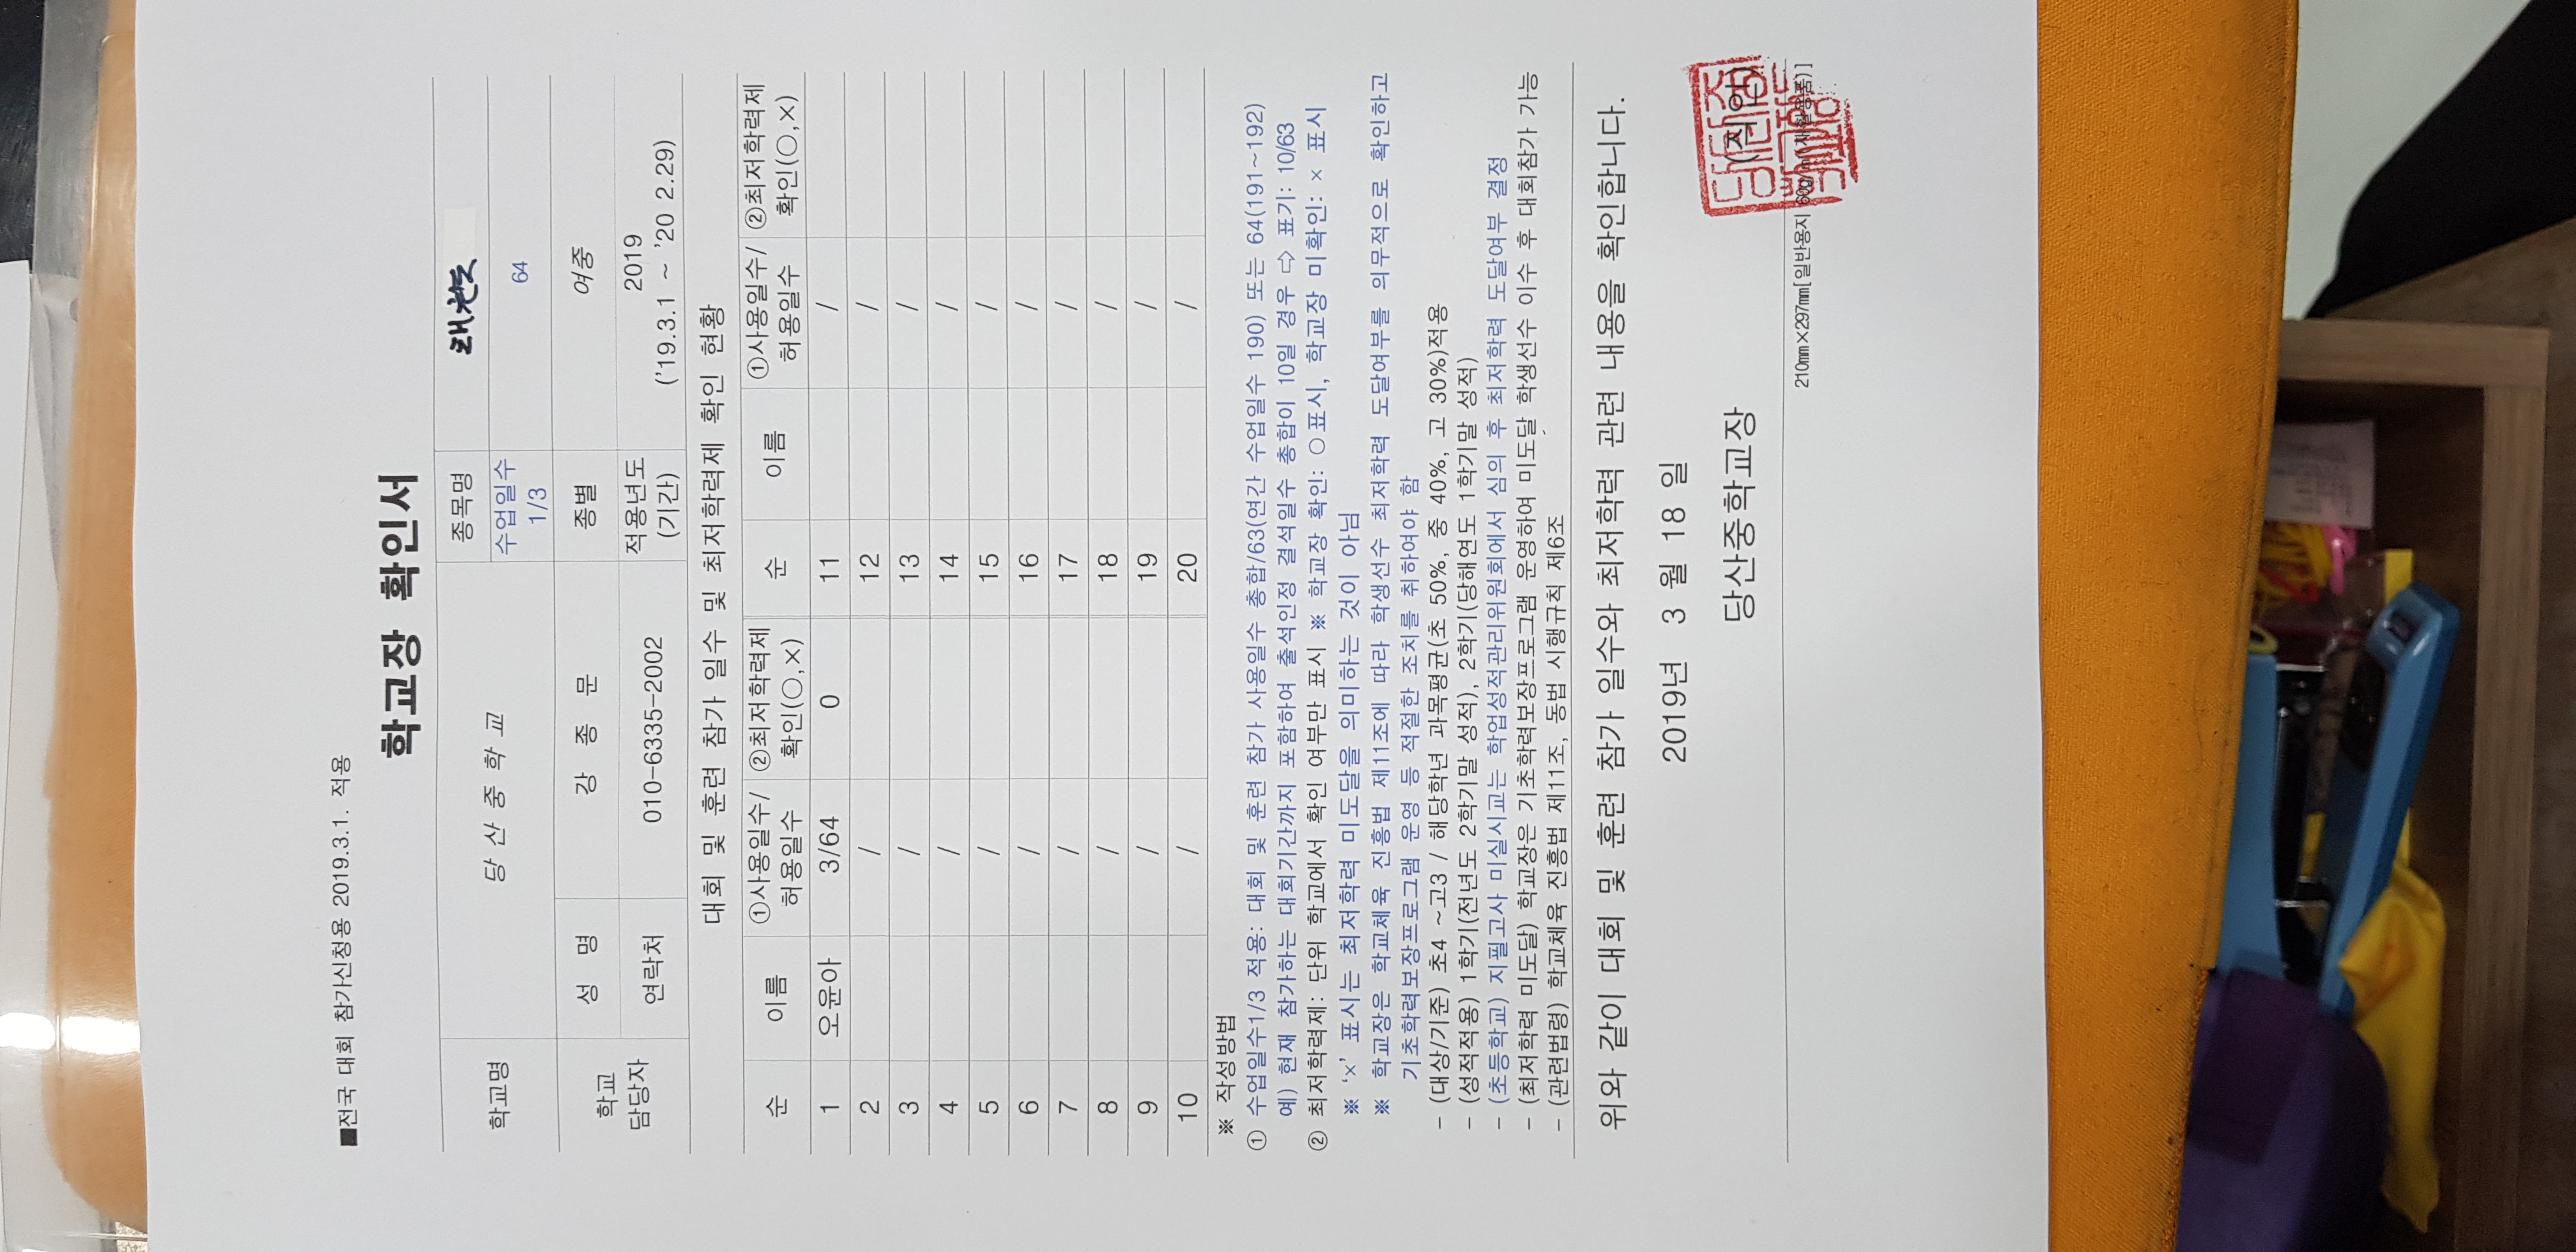 ■전국 대회 참가신청용 2019.3.1. 적용
학교장 확인서
학교명 당산중학교 종목명 태권도
수업일수 1/3 64
학교 담당자 성 명 강 종 문 종별 여중
연락처 010-6335-2002 적용년도 (기간) 2019 ('19.3.1 ~ '20 2.29)
대회 및 훈련 참가 일수 및 최저학력제 확인 현황
순 이름 ①사용일수/허용일수 ②최저학력제 확인(○,×) 순 이름 ①사용일수/허용일수 ②최저학력제 확인(○,×)
1 오윤아 3/64 0 11 /
2 / 12 /
3 / 13 /
4 / 14 /
5 / 15 /
6 / 16 /
7 / 17 /
8 / 18 /
9 / 19 /
10 / 20 /
※ 작성방법
① 수업일수1/3 적용: 대회 및 훈련 참가 사용일수 총합/63(연간 수업일수 190) 또는 64(191~192)
예) 현재 참가하는 대회기간까지 포함하여 출석인정 결석일수 총합이 10일 경우 ⇨ 표기: 10/63
② 최저학력제: 단위 학교에서 확인 여부만 표시 ※ 학교장 확인: ○표시, 학교장 미확인: × 표시
※ '×' 표시는 최저학력 미도달을 의미하는 것이 아님
※ 학교장은 학교체육 진흥법 제11조에 따라 학생선수 최저학력 도달여부를 의무적으로 확인하고
기초학력보장프로그램 운영 등 적절한 조치를 취하여야 함
- (대상/기준) 초4 ~고3 / 해당학년 과목평균(초 50%, 중 40%, 고 30%)적용
- (성적적용) 1학기(전년도 2학기말 성적), 2학기(당해연도 1학기말 성적)
- (초등학교) 지필고사 미실시교는 학업성적관리위원회에서 심의 후 최저학력 도달여부 결정
- (최저학력 미도달) 학교장은 기초학력보장프로그램 운영하여 미도달 학생선수 이수 후 대회참가 가능
- (관련법령) 학교체육 진흥법 제11조, 동법 시행규칙 제6조
위와 같이 대회 및 훈련 참가 일수와 최저학력 관련 내용을 확인합니다.
2019년 3 월 18 일
당산중학교장 (직인)
210㎜×297㎜[일반용지 60g/㎡(재활용품)]